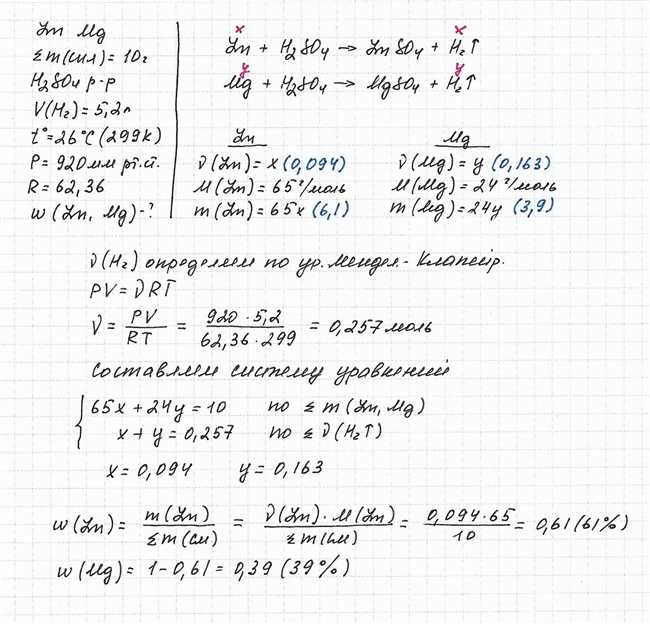 Zn Mg
Σm(смл)=10г
H₂SO₄ р-р
V(H₂)=5,2л
t°=26°C (299k)
P=920мм рт.ст.
R=62,36
w(Zn, Mg)-?
x x
Zn + H₂SO₄ → ZnSO₄ + H₂↑
y y
Mg + H₂SO₄ → MgSO₄ + H₂↑
Zn
ν(Zn)=x(0,094)
M(Zn)=65г/моль
m(Zn)=65x(6,1)
Mg
ν(Mg)=y(0,163)
M(Mg)=24г/моль
m(Mg)=24y(3,9)
ν(H₂) определяем по ур. Мендел.-Клапейр.
PV=νRT
ν = PV/RT = 920·5,2/62,36·299 = 0,257моль
Составляем систему уравнений
{65x+24y=10 по Σm(Zn,Mg)
x+y=0,257 по Σν(H₂↑)
x=0,094 y=0,163
w(Zn)= m(Zn)/Σm(см) = ν(Zn)·M(Zn)/Σm(см) = 0,094·65/10 = 0,61(61%)
w(Mg)=1-0,61=0,39(39%)